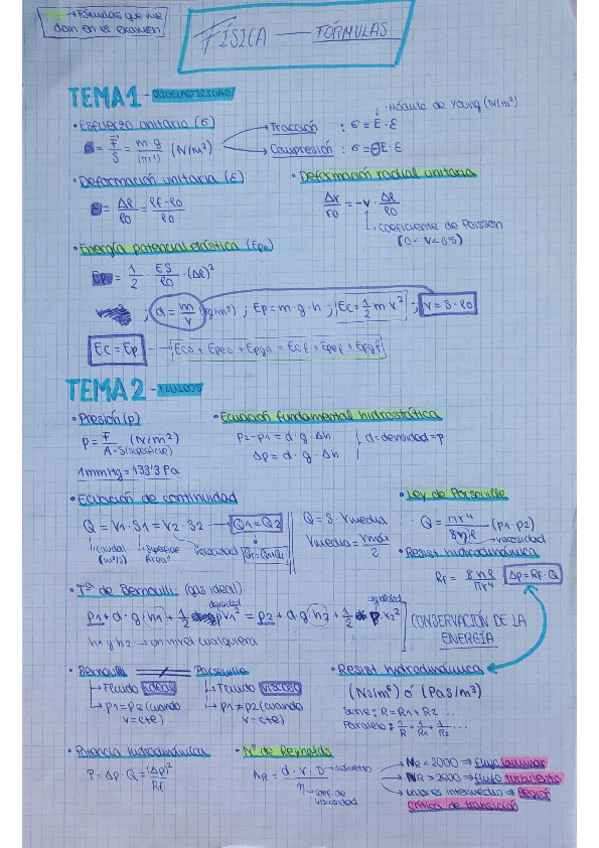 → Fórmulas que me
dan en es examen
FÍSICA — FÓRMULAS
TEMA 1 - BIOELASTICIDAD
• Esfuerzo unitario (σ)
σ = F/S = m·g/(πr²) (N/m²)
→ Tracción : σ = E·ε
→ Compresión : σ = -E·ε
Módulo de Young (N/m²)
• Deformación unitaria (ε)
ε = Δl/l0 = lf-l0/l0
• Deformación radial unitaria
Δr/r0 = -ν · Δl/l0
↳ coeficiente de Poisson
(0 < ν < 0'5)
• Energía potencial elástica (Epe)
Epe = 1/2 · ES/l0 · (Δl)²
; d = m/v (kg/m³) ; Ep = m·g·h ; Ec = 1/2 m v² ; V = S·l0
Ec = Ep → Eco + Epeo + Epgo = Ecf + Epef + Epgf
TEMA 2 - FLUIDOS
• Presión (p)
P = F/A (N/m²)
A = S (superficie)
1 mmHg = 133'3 Pa
• Ecuación fundamental hidrostática
P2 - P1 = d · g · Δh
Δp = d · g · Δh
d = densidad = ρ
• Ecuación de continuidad
Q = V1·S1 = V2·S2 → Q1 = Q2
caudal (m³/s)
superficie Área
velocidad
Q = S · Vmedia
Vmedia = Vmáx/2
• Ley de Poiseuille
Q = πr⁴/8ηl (P1-P2)
↳ viscosidad
• Resist hidrodinámica
Rf = 8ηl/πr⁴
Δp = Rf · Q
• Tª de Bernoulli: (gas ideal)
P1 + d·g(h1) + 1/2 ρ v1² = P2 + d·g(h2) + 1/2 · ρ · v2²
densidad
densidad
h1 y h2 → un nivel cualquiera
CONSERVACIÓN DE LA
ENERGÍA
• Bernoulli ≠ Poiseuille
↳ Fluido ideal
↳ P1 = P2 (cuando
v = cte)
↳ Fluido viscoso
↳ P1 ≠ P2 (cuando
v = cte)
• Resist hidrodinámica
(Ns/m⁵) ó (Pa s/m³)
Serie: R = R1 + R2 ...
Paralelo: 1/R = 1/R1 + 1/R2 ...
• Potencia hidrodinámica
P = Δp · Q = (Δp)²/Rf
• Nº de Reynolds
NR = d · v · D/η
→ diámetro
↳ coef. de
viscosidad
→ NR < 2000 ⇒ flujo laminar
→ NR > 2000 ⇒ flujo turbulento
→ valores intermedios ⇒ Región
crítica de transición